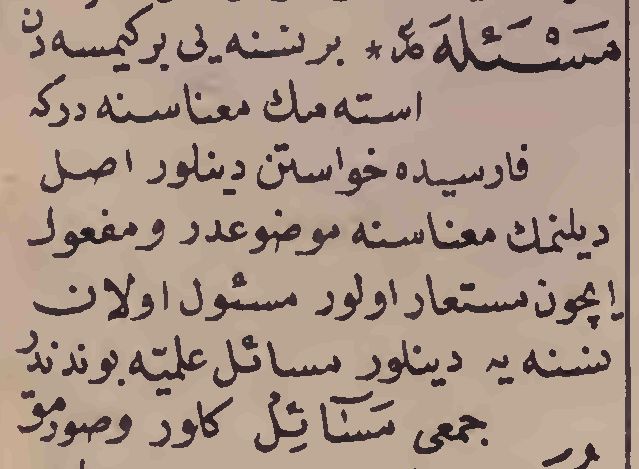 مَسْئَلَه * بر نسنه یی بر كیمسه دن
استه مك معناسنه در كه
فارسیده خواستن دینلور اصل
دیلنمك معناسنه موضوعدر و مفعول
ایچون مستعار اولور مسئول اولان
نسنه یه دینلور مسائل علمیّه بوندندر
جمعی مَسَآئِلْ كلور وصورمق